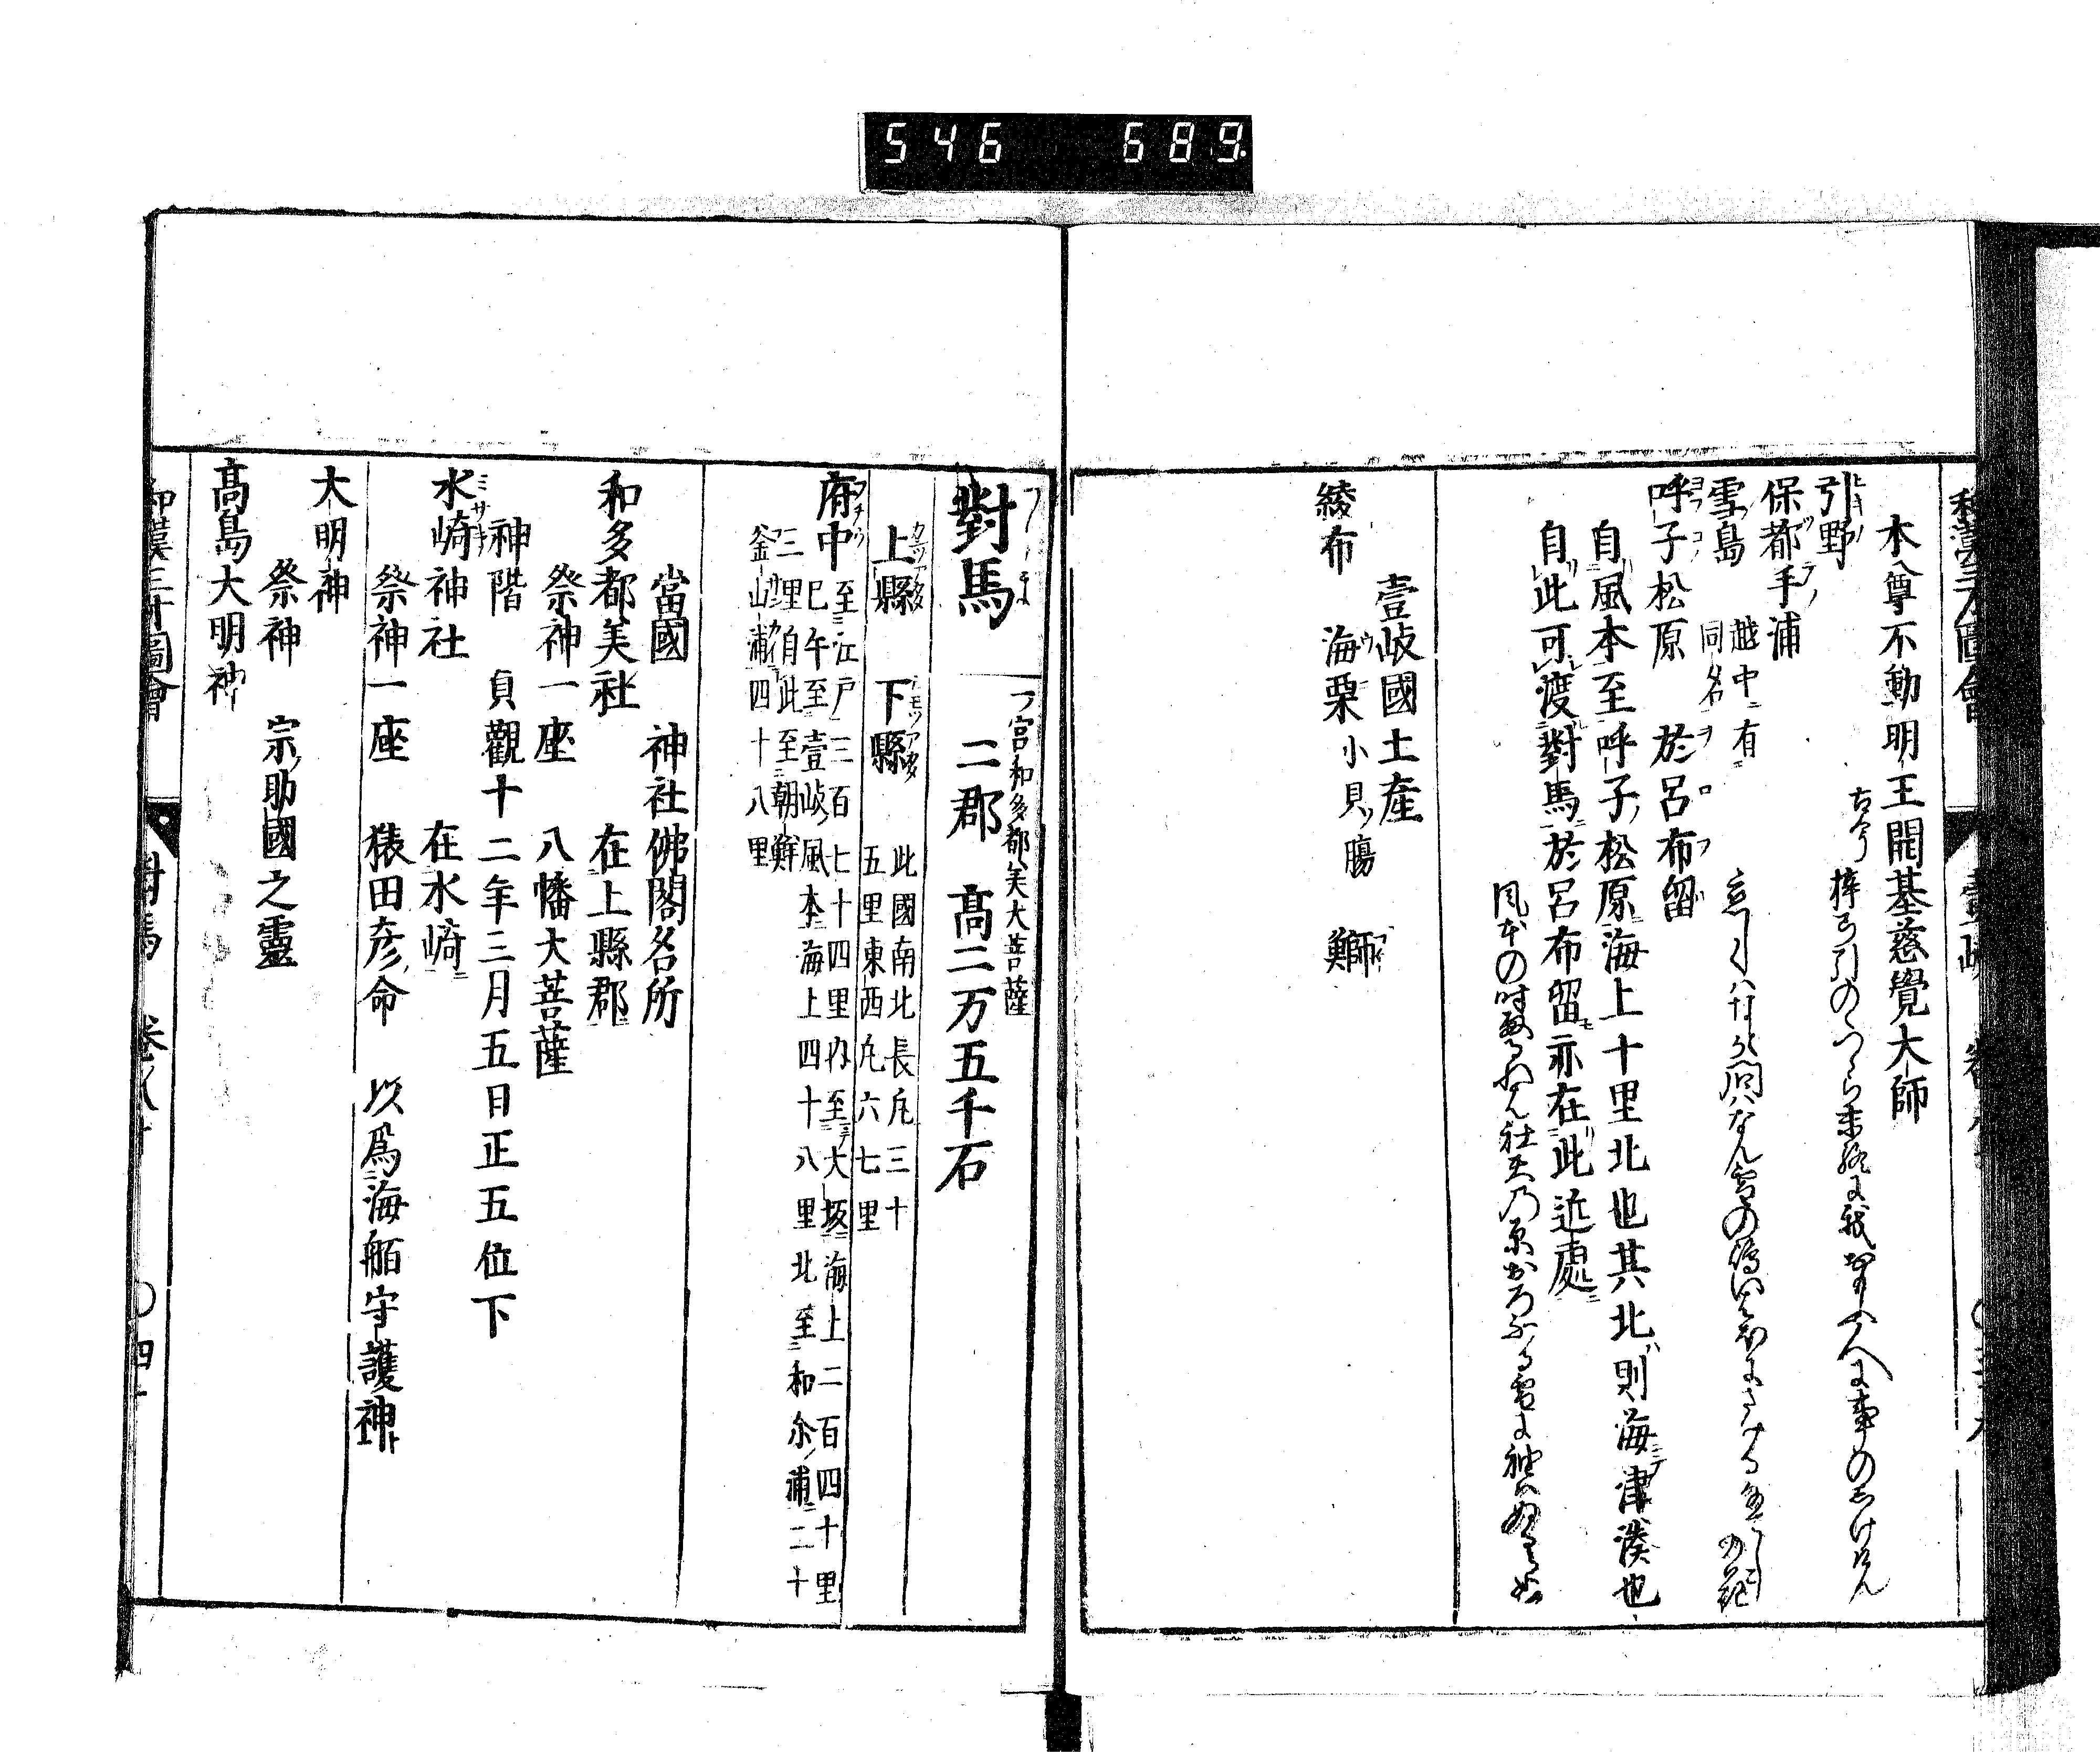 546 689
和漢三才圖會 壹岐
本尊不動明王開基慈覺大師
引野
古今 梓弓引のゝつゝら末終に我思ふ人に事のしけけん
保都手浦
雪島 越中有
同名
呼子松原 於呂布留
自風本至呼子松原海上十里北也其北則海津湊也
自此可渡對馬於呂布留亦在此近處
壹岐國土產
綾布 海栗 小貝 腸 鰤
對馬 二郡 高二万五千石
一宮和多都美大菩薩
上縣 下縣 此國南北長凢三十
五里東西凢六七里
府中 至江戸三百七十四里内至大坂海上二百四十里
巳午至壹岐風本海上四十八里北至和尓浦二十
三里自此至朝鮮
釜山浦四十八里
當國 神社佛閣名所
和多都美社 在上縣郡
祭神一座 八幡大菩薩
神階 貞觀十二年三月五日正五位下
水崎神社 在水崎
祭神一座 猿田彦命 以爲海舶守護神
大明神
祭神 宗助國之靈
高島大明神
和漢三才圖會 對馬 卷八十 〇四十